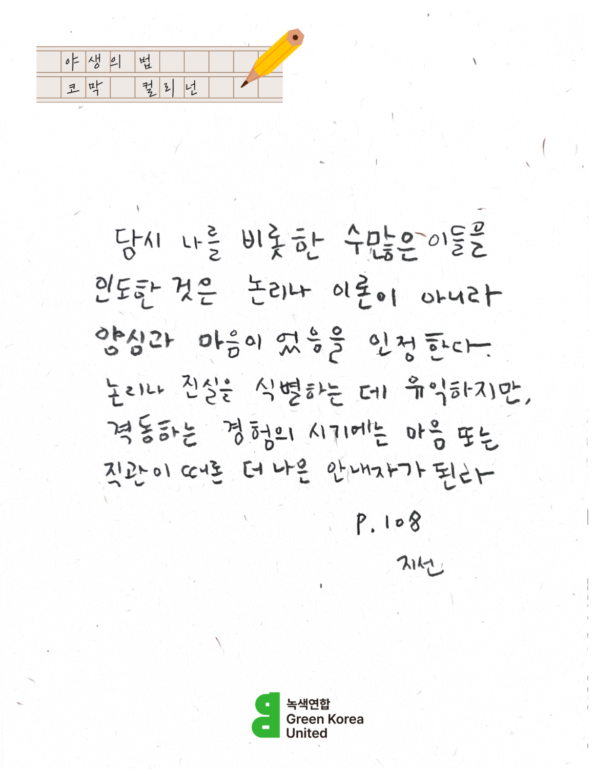 야생의 법
코막 컬리넌
당시 나를 비롯한 수많은 이들을
인도한 것은 논리나 이론이 아니라
양심과 마음이 었음을 인정한다.
논리나 진실을 식별하는 데 유익하지만,
격동하는 경험의 시기에는 마음 또는
직관이 때론 더 나은 안내자가 된다
P.108
지선
녹색연합
Green Korea
United